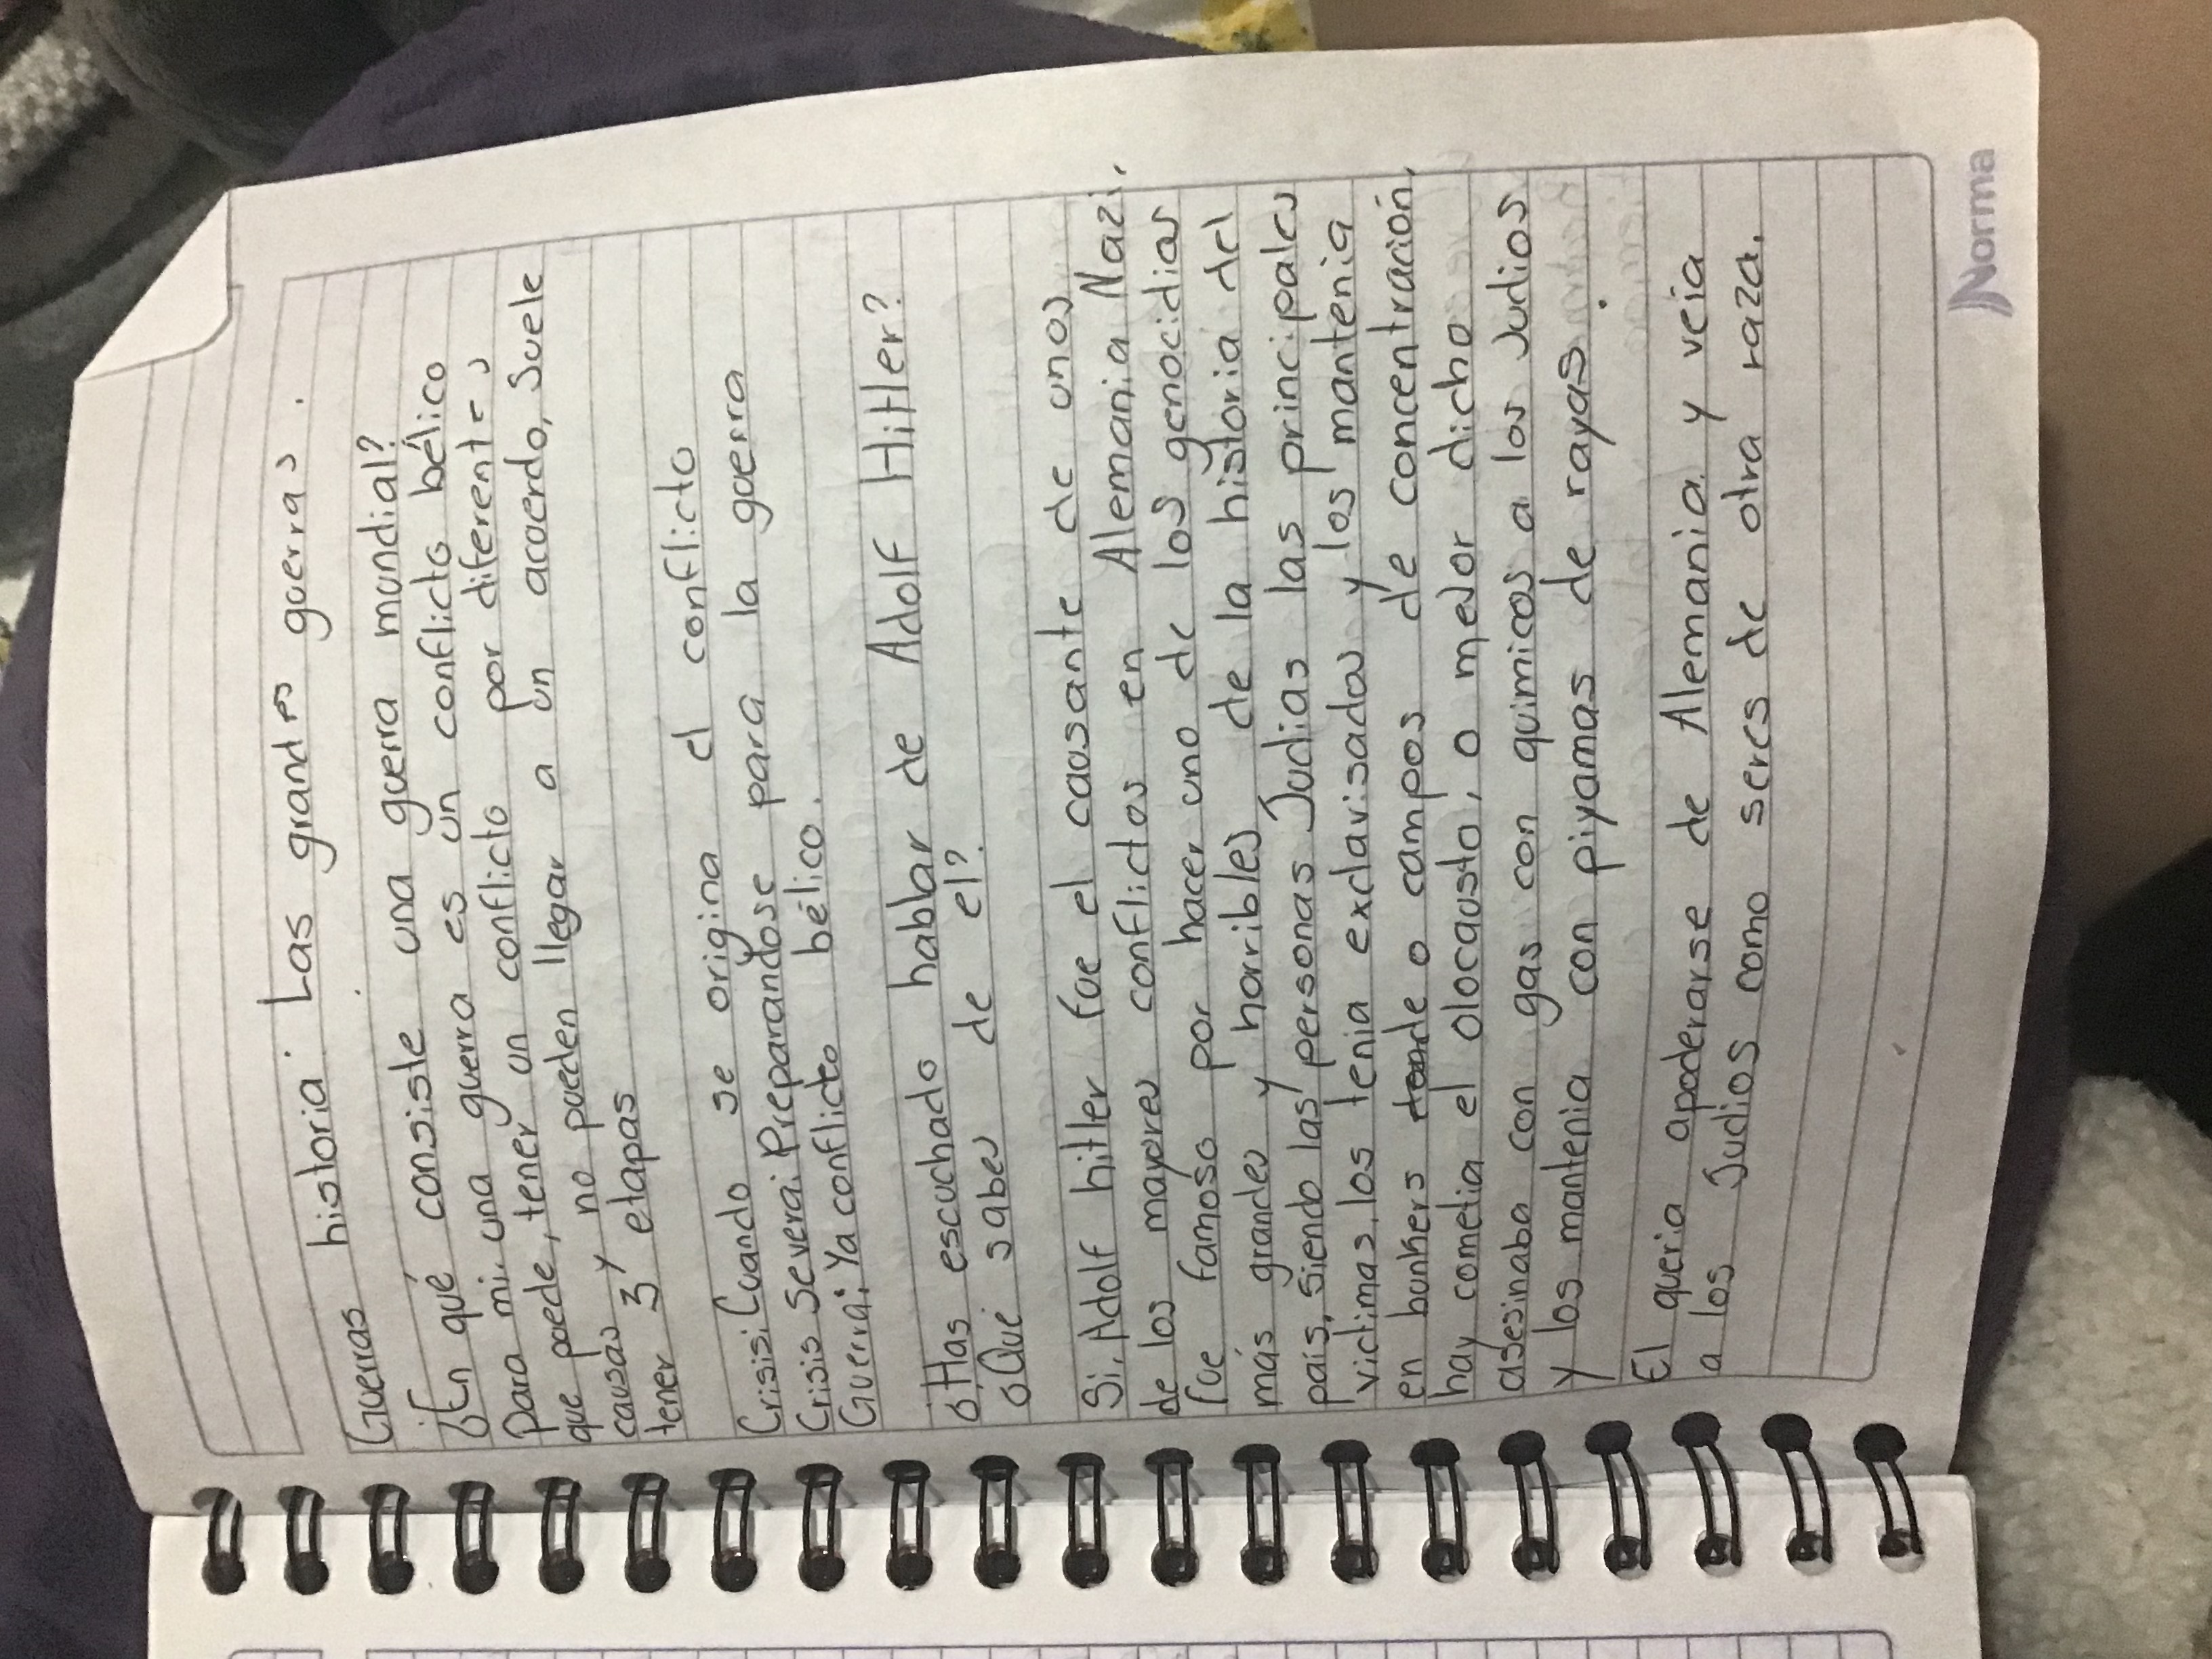 historia: Las grandes guerras.
Guerras
¿En qué consiste una guerra mundial?
Para mi, una guerra es un conflicto bélico
que puede, tener un conflicto por diferentes
causas y no pueden llegar a un acuerdo, Suele
tener 3 etapas
Crisis: Cuando se origina el conflicto
Crisis Severa: Preparandose para la guerra
Guerra: Ya conflicto bélico.
¿Has escuchado hablar de Adolf Hitler?
¿Qué sabes de el?
Si, Adolf hitler fue el causante de unos
de los mayores conflictos en Alemania Nazi,
fue famoso por hacer uno de los genocidios
más grandes y horribles de la historia del
país, siendo las personas Judias las principales
victimas, los tenia exclavisados y los mantenia
en bunkers donde o campos de concentración,
hay cometia el olocausto, o mejor dicho
asesinaba con gas con quimicos a los Judios
y los mantenia con piyamas de rayas.
El queria apoderarse de Alemania y veia
a los Judios como seres de otra raza.
Norma